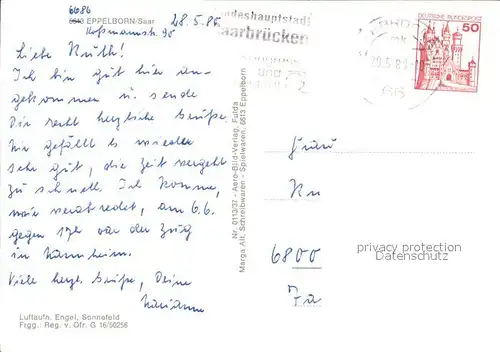 6686
6613 EPPELBORN/Saar
28.5.86
Landeshauptstadt
Saarbrücken
DEUTSCHE BUNDESPOST
50
Liebe Ruth!
Ich bin gut hier an-
gekommen u. sende
Dir recht herzliche Grüße.
Mir gefällt es wieder
sehr gut, die Zeit vergeht
zu schnell. Ich komme,
wie verabredet, am 6.6.
gegen 17h vor der Zug
in Mannheim.
Viele herzl. Grüße, Deine
Marianne
Luftaufn. Engel, Sonnefeld
Frgg.: Reg. v. Ofr. G 16/50256
Nr. 0113/37 - Aero-Bild-Verlag, Fulda
Marga Alt, Schreibwaren - Spielwaren, 6613 Eppelborn
Frau
Ru
6800
privacy protection
Datenschutz